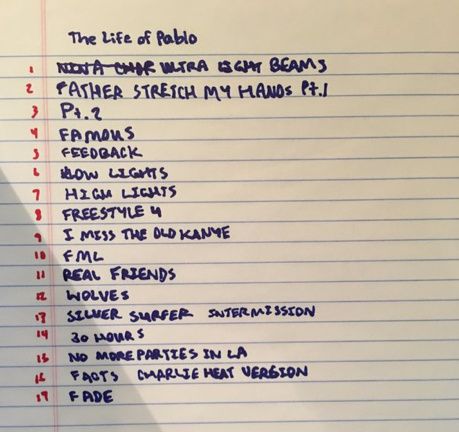 The Life of Pablo
1 ULTRA LIGHT BEAMS
2 FATHER STRETCH MY HANDS Pt.1
3 Pt.2
4 FAMOUS
5 FEEDBACK
6 LOW LIGHTS
7 HIGH LIGHTS
8 FREESTYLE 4
9 I MISS THE OLD KANYE
10 FML
11 REAL FRIENDS
12 WOLVES
13 SILVER SURFER INTERMISSION
14 30 HOURS
15 NO MORE PARTIES IN LA
16 FACTS CHARLIE HEAT VERSION
17 FADE